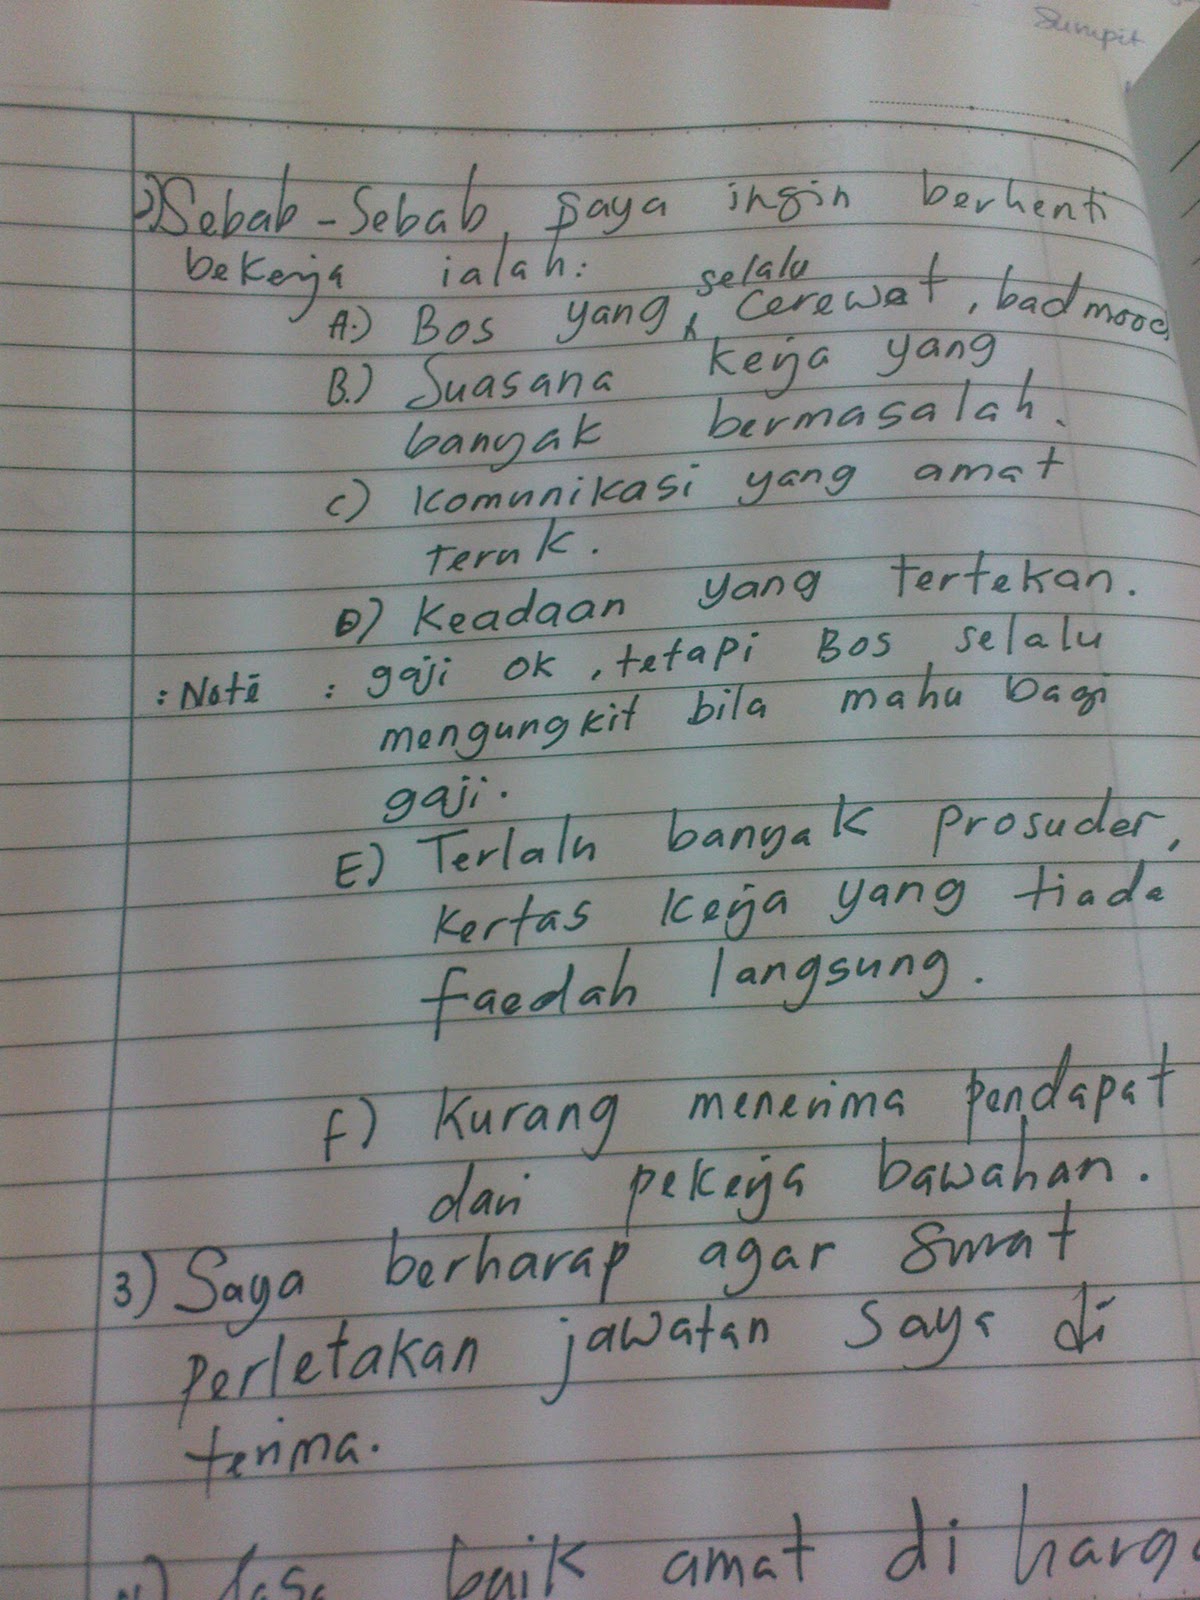 Sumpit
2) Sebab-Sebab saya ingin berhenti
bekerja ialah:
selalu
A.) Bos yang, cerewet, bad mood
B.) Suasana kerja yang
banyak bermasalah.
C) Komunikasi yang amat
teruk.
D) Keadaan yang tertekan.
: Note : gaji ok, tetapi Bos selalu
mengungkit bila mahu bagi
gaji.
E) Terlalu banyak prosuder,
kertas kerja yang tiada
faedah langsung.
F) Kurang menerima pendapat
dari pekerja bawahan.
3) Saya berharap agar surat
perletakan jawatan saya di
terima.
4) Jasa baik amat di harga